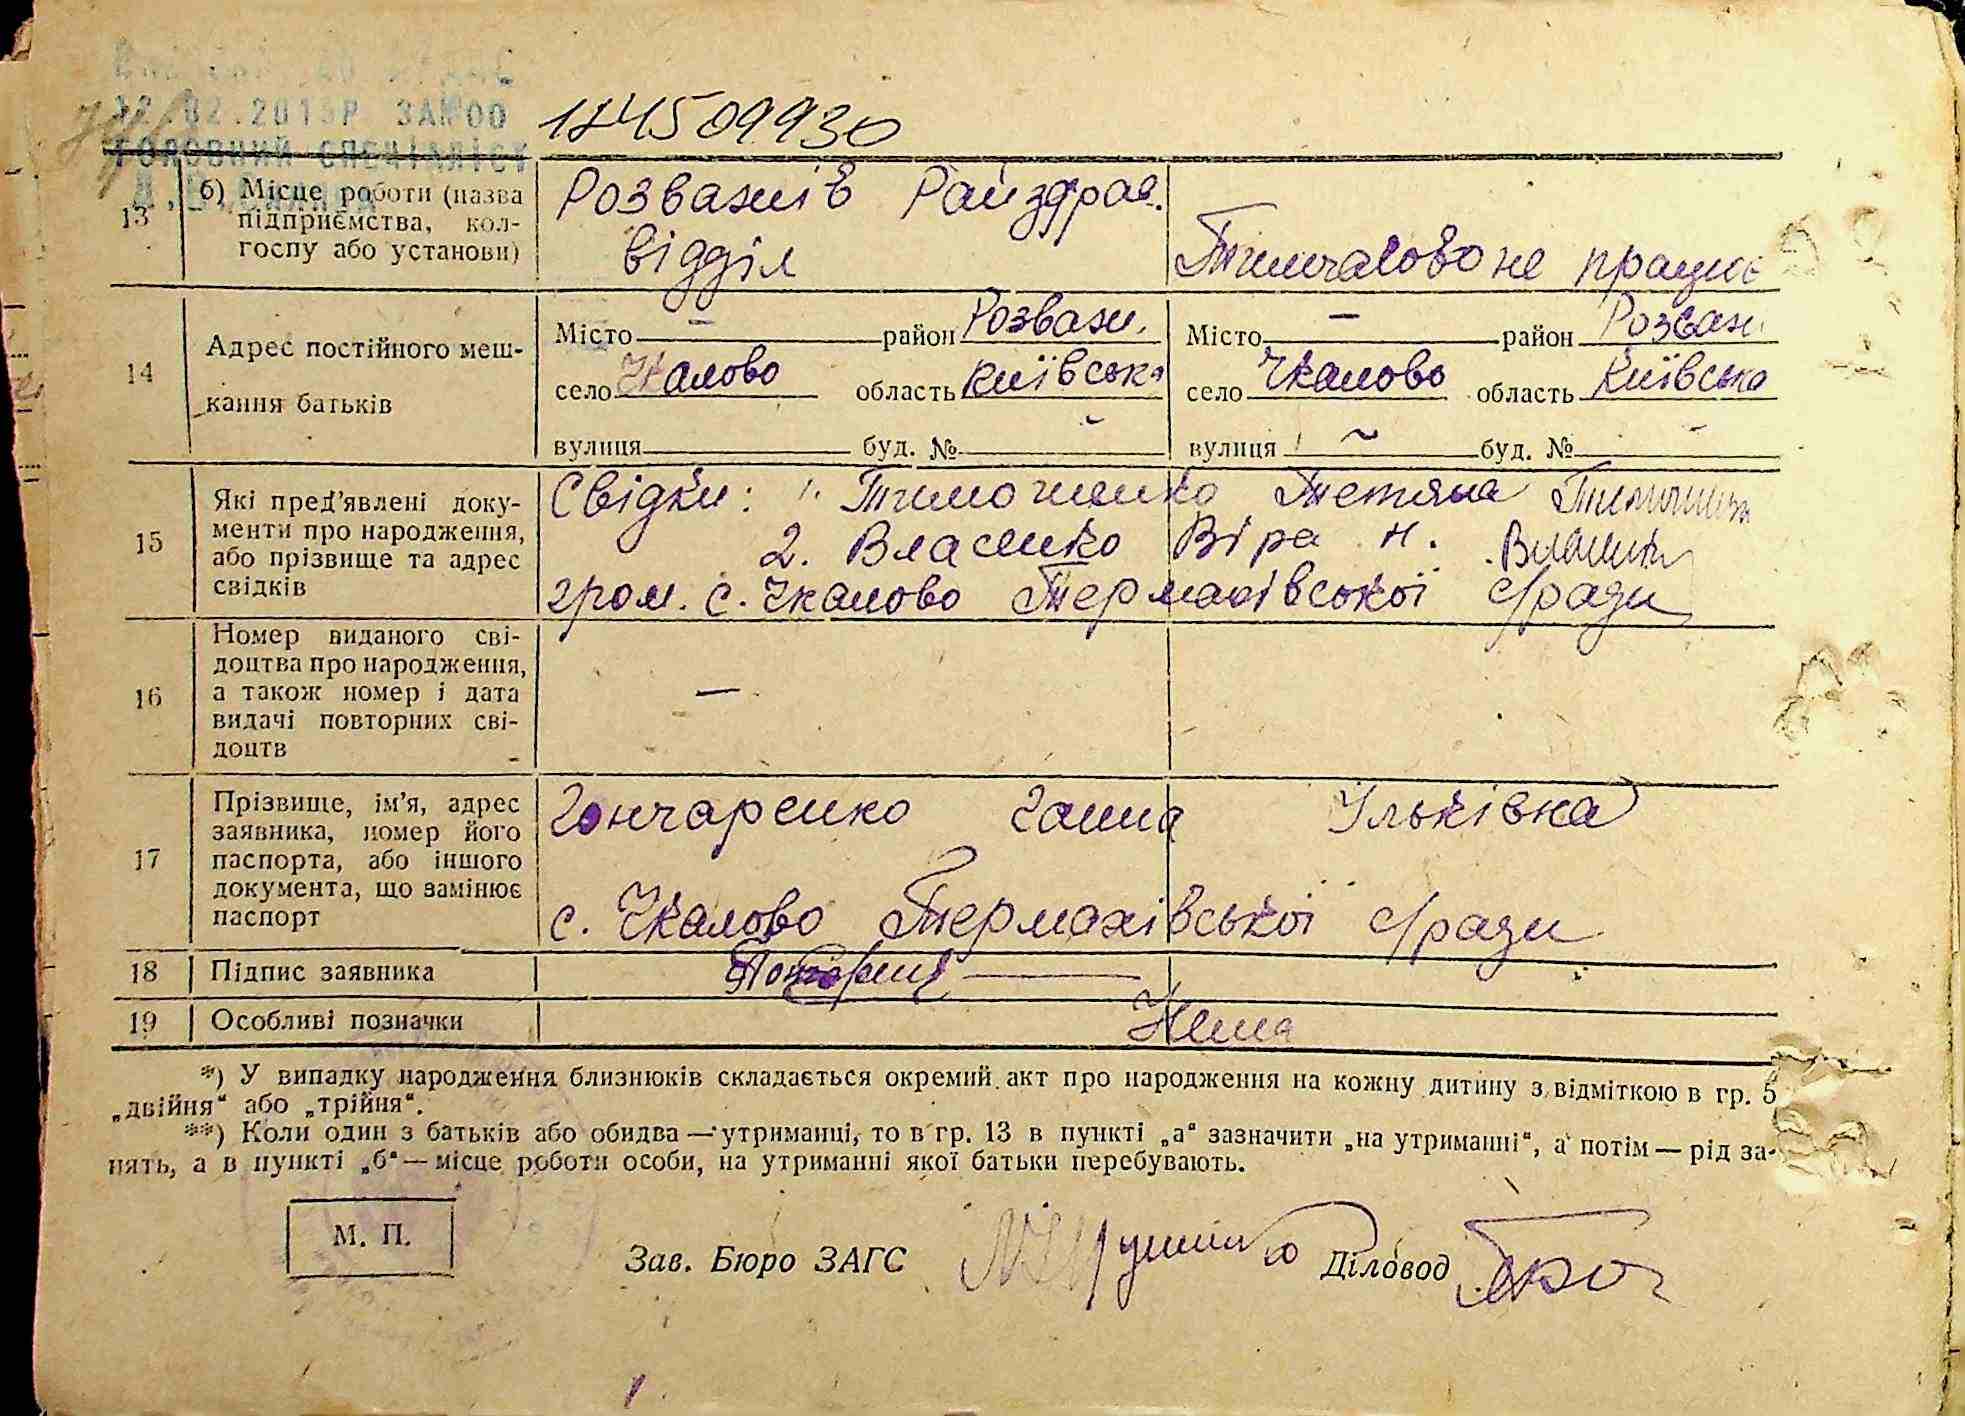 12.02.2015Р ЗАМ 00
ГОЛОВНИЙ СПЕЦІАЛІСТ
184509930
13 б) Місце роботи (назва підприємства, колгоспу або установи) Розважів Райздрав. відділ Тимчасово не працює
14 Адрес постійного мешкання батьків
Місто — район Розваж. Місто — район Розваж
село Чкалово область київська село Чкалово область Київська
вулиця буд. № вулиця буд. №
15 Які пред'явлені документи про народження, або прізвище та адрес свідків
Свідки: 1. Тимошенко Тетяна
2. Власенко Віра Н.
гром. с. Чкалово Термахівської с/ради
16 Номер виданого свідоцтва про народження, а також номер і дата видачі повторних свідоцтв —
17 Прізвище, ім'я, адрес заявника, номер його паспорта, або іншого документа, що замінює паспорт
Гончаренко Ганна Ільківна
с. Чкалово Термахівської с/ради
18 Підпис заявника
19 Особливі позначки Нема
*) У випадку народження близнюків складається окремий акт про народження на кожну дитину з відміткою в гр. 5
„двійня“ або „трійня“.
**) Коли один з батьків або обидва — утриманці, то в гр. 13 в пункті „а“ зазначити „на утриманні“, а потім — рід за-
нять, а в пункті „б“ — місце роботи особи, на утриманні якої батьки перебувають.
М. П.
Зав. Бюро ЗАГС Діловод